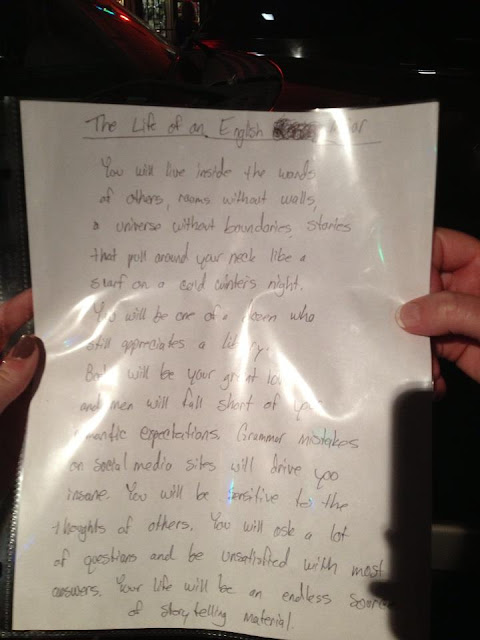 The Life of an English
You will live inside the words
of others, rooms without walls,
a universe without boundaries, stories
that pull around your neck like a
scarf on a cold winter's night.
You will be one of a who
still appreciates a
will be your great
and men will fall short of your
romantic expectations. Grammar mistakes
on social media sites will drive you
insane. You will be sensitive to the
thoughts of others. You will ask a lot
of questions and be unsatisfied with most
answers. Your life will be an endless source
of storytelling material.